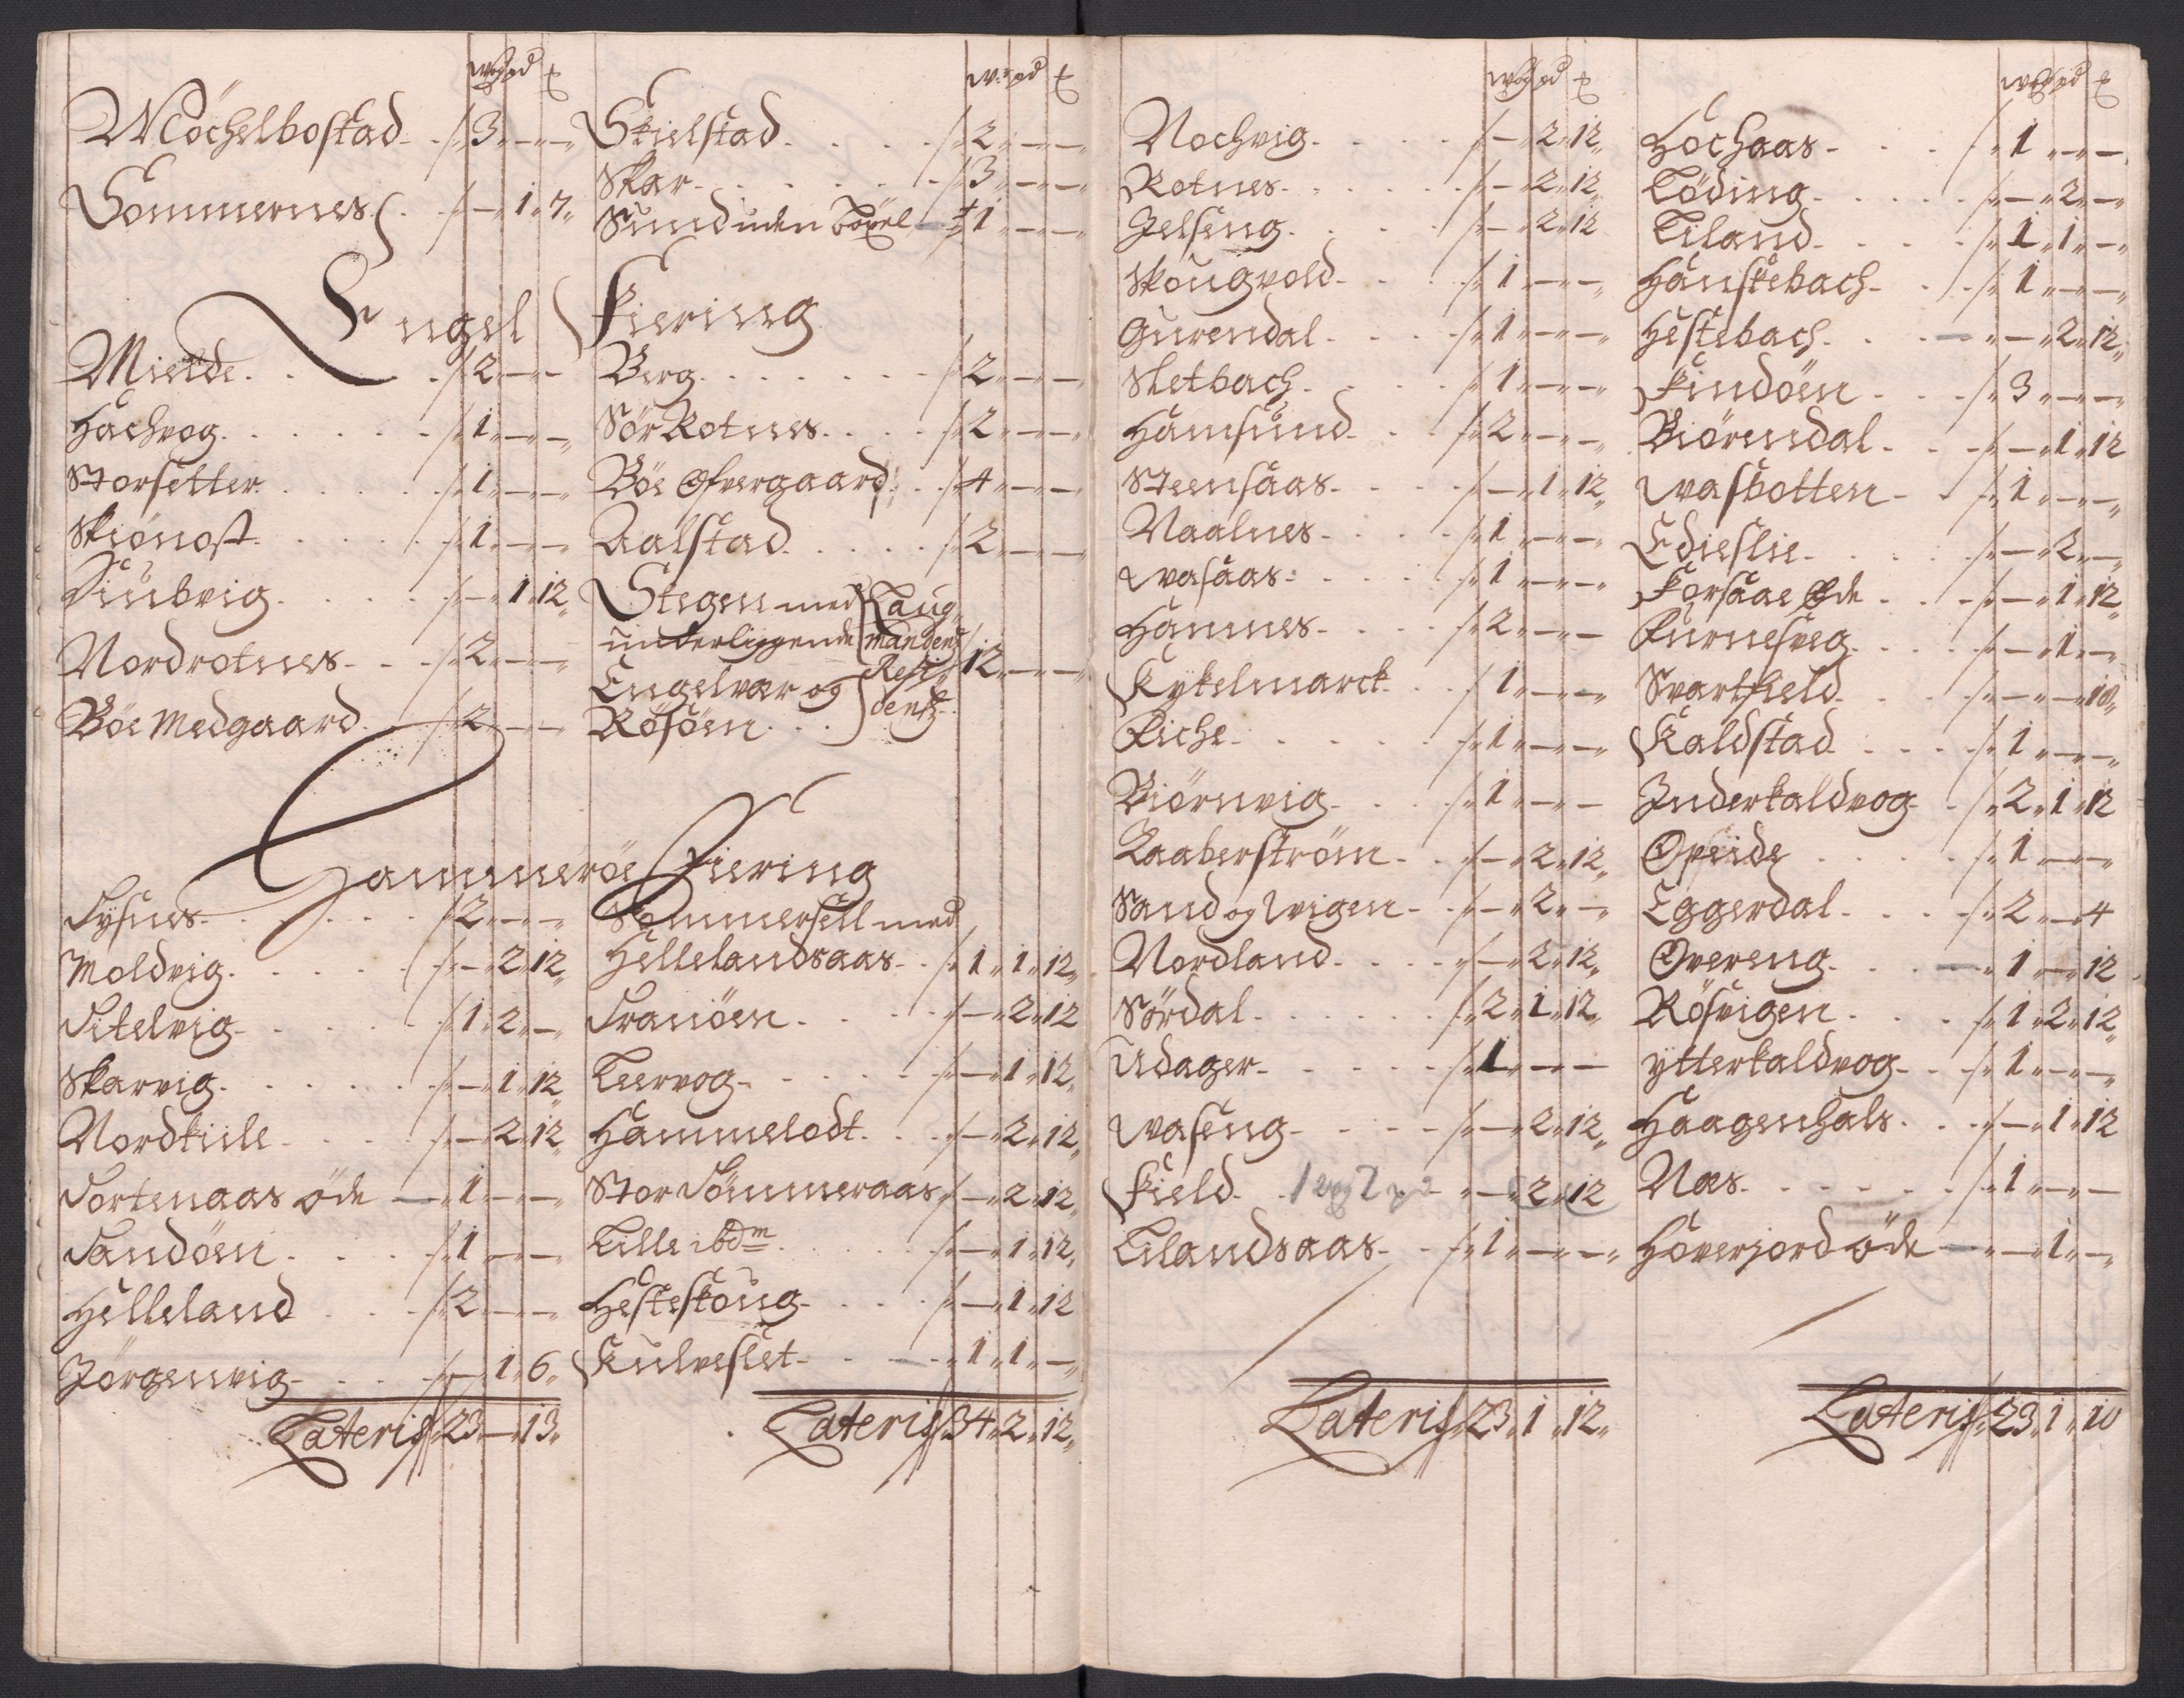 Wog pd ℔
Möchelbostad - 3 - -
Sommernes - - 1 7
Engel
Mielde - 2 - -
Hachvog - 1 - -
Storsetter - 1 - -
Skiönost - 1 - -
Diubvig - - 1 12
Nordrotnes - 2 - -
Böe Medgaard - 2 - -
Hammeröe
Fysnes - 2 - -
Moldvig - - 2 12
Fitelvig - 1 2 -
Skarvig - - 1 12
Nordkiile - - 2 12
Fortenaas öde - 1 - -
Tandöen - 1 - -
Helleland - 2 - -
Jörgenvig - - 1 6
Lateris 23 - 13
W: pd ℔
Skielstad - 2 - -
Skar - 3 - -
Sund uden - 1 - -
Fiering
Berg - 2 - -
Sör Rotnes - 2 - -
Böe Ofvergaard - 4 - -
Aalstad - 2 - -
Stegen med Laug
underliggende mandens
Engelvær og Resi 12 - -
Rösöen dentz
Fiering
Sommersell med
Hellelandsaas - 1 1 12
Tranöen - - 2 12
Leervog - - 1 12
Hammelodt - - 2 12
Stor Tömmeraas - - 2 12
Lille ibdm - - 1 12
Hesteskoug - - 1 12
Kulveslet - 1 1 -
Lateris 34 2 12
Wog pd ℔
Nochvig - - 2 12
Rotnes - - 2 12
Jelseng - - 2 12
Skougvold - 1 - -
Gurendal - 1 - -
Sletbach - 1 - -
Hamsund - 2 - -
Steensaas - - 1 12
Naalnes - 1 - -
Wasaas - 1 - -
Hamnes - 2 - -
Kykelmarck - 1 - -
Fiche - 1 - -
Biörnvig - 1 - -
Raaberström - - 2 12
Sand og Wigen - - 2 -
Nordland - - 2 12
Sördal - 2 1 12
Udager - 1 - -
Waseng - - 2 12
Field - 1 wog 2 pd - 2 12
Lilandsaas - 1 - -
Lateris 23 1 12
Wog pd ℔
Hochaas - 1 - -
Löding - - 2 -
Liland - 1 1 -
Hanstebach - 1 - -
Hestebach - - 2 12
Findöen - 3 - -
Biörendal - - 1 12
Wasbotten - 1 - -
Edieslie - - 2 -
Forsaae Öde - - 1 12
Furnesveg - - 1 -
Svartfield - - - 18
Kaldstad - 1 - -
Inderkaldvog - 2 1 12
Opeide - 1 - -
Eggerdal - 2 - 4
Overeng - 1 - 12
Rösvigen - 1 2 12
Ytterkaldvog - 1 - -
Haagenhals - - 1 12
Næs - 1 - -
Hoverjord öde - - 1 -
Lateris 23 1 10